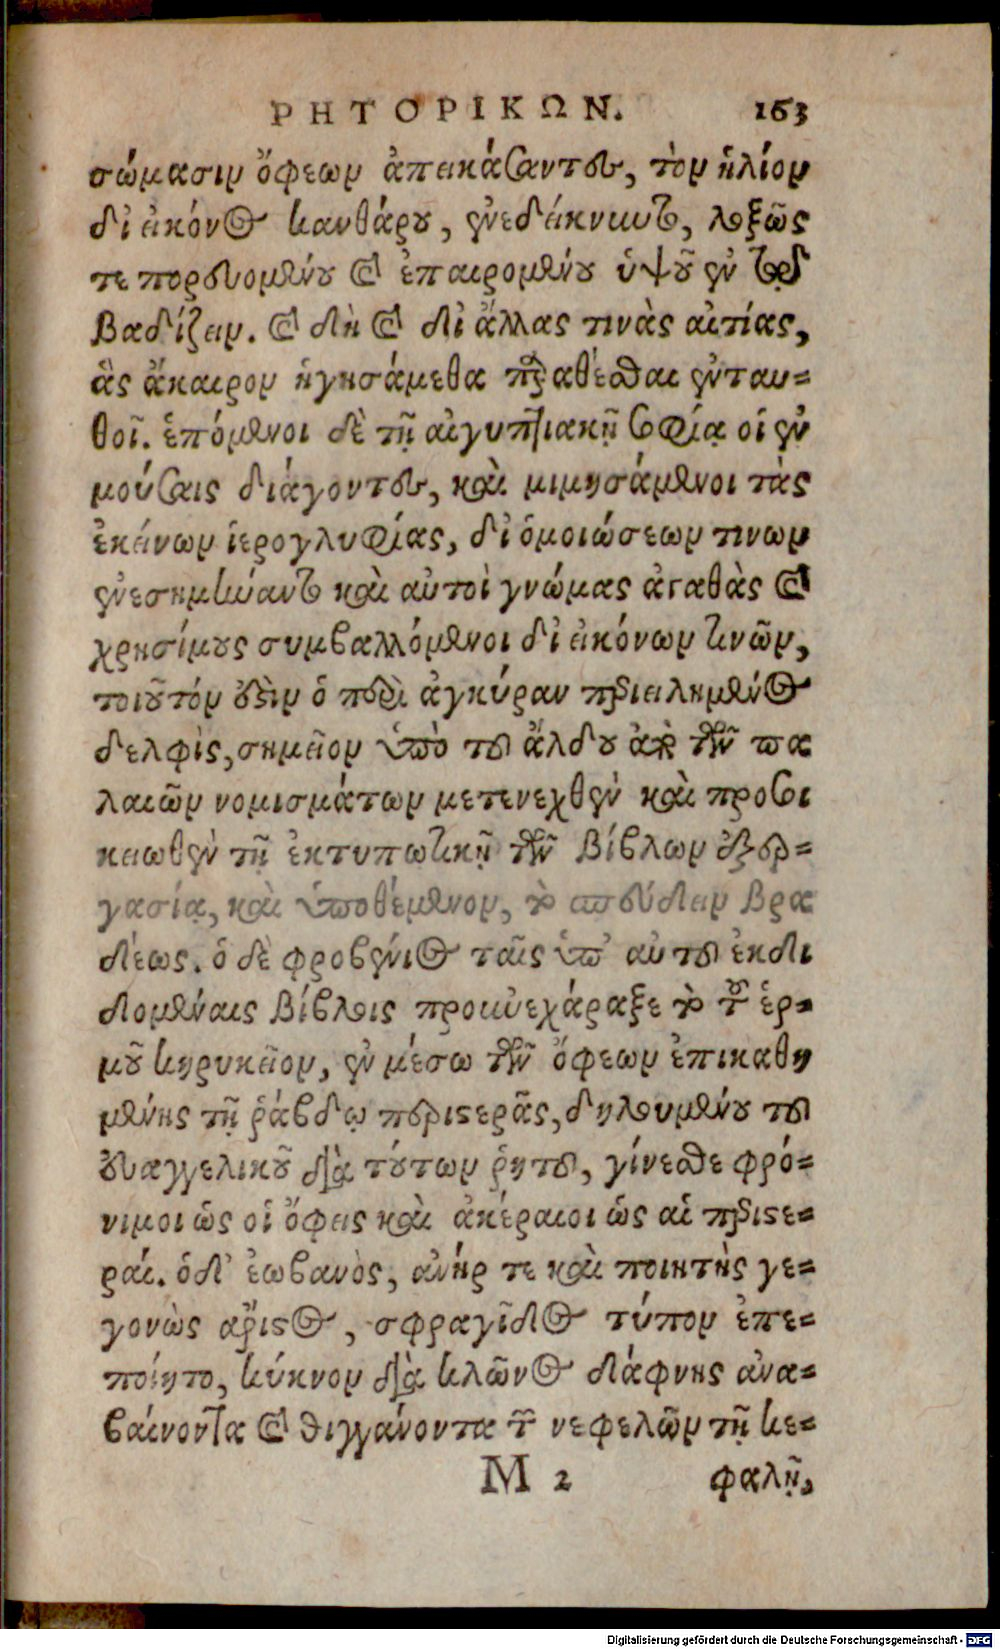 ΡΗΤΟΡΙΚΩΝ. 163
σώμασιν ὄφεων ἀπεικάσαντες, τὸν ἡλίον
δι εἰκόνος κανθάρου, ἐνεδείκνυντο, λοξῶς
τε πορευομένου καὶ ἐπαιρομένου ὑψοῦ ἐν τῷ
βαδίζειν. καὶ δὴ καὶ δι ἄλλας τινὰς αἰτίας,
ἃς ἄκαιρον ἡγησάμεθα παραθέσθαι ἐνταυ=
θοῖ. ἑπόμενοι δὲ τῇ αἰγυπτιακῇ σοφίᾳ οἱ ἐν
μούσαις διάγοντες, καὶ μιμησάμενοι τὰς
ἐκείνων ἱερογλυφίας, δι ὁμοιώσεων τινων
ἐνεσημήναντο καὶ αὐτοὶ γνώμας ἀγαθὰς καὶ
χρησίμους συμβαλλόμενοι δι εἰκόνων τινῶν,
τοιοῦτόν ἐστιν ὁ περὶ ἀγκύραν περιειλημένος
δελφὶς, σημεῖον ὑπὸ τοῦ ἄλδου ἀπὸ τῶν πα
λαιῶν νομισμάτων μετενεχθὲν καὶ προσοι
κειωθὲν τῇ ἐκτυπωτικῇ τῶν βίβλων ἐξερ=
γασίᾳ, καὶ ὑποθέμενον, τὸ σπεύδειν βρα
δέως. ὁ δὲ φροβένιος ταῖς ὑπ' αὐτοῦ ἐκδι
δομέναις βίβλοις προενεχάραξε τὸ τοῦ ἑρ=
μοῦ κηρυκεῖον, ἐν μέσω τῶν ὄφεων ἐπικαθη
μένης τῇ ῥάβδῳ περιστερᾶς, δηλουμένου τοῦ
εὐαγγελικοῦ διὰ τούτων ῥητοῦ, γίνεσθε φρό=
νιμοι ὡς οἱ ὄφεις καὶ ἀκέραιοι ὡς αἱ περιστε=
ραί. ὁ δ' ἐωβανὸς, ἀνήρ τε καὶ ποιητὴς γε=
γονὼς ἄριστος, σφραγῖδος τύπον ἐπε=
ποίητο, κύκνον διὰ κλῶνος δάφνης ἀνα=
βαίνοντα καὶ θιγγάνοντα τῶν νεφελῶν τῇ κε=
M 2 φαλῇ,
Digitalisierung gefördert durch die Deutsche Forschungsgemeinschaft - DFG